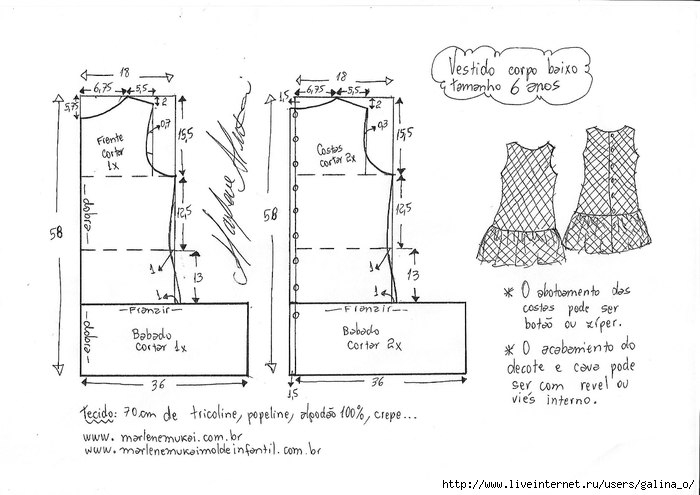 Vestido corpo baixo
tamanho 6 anos
18
6,75 5,5
5,75
2
0,7
15,5
Frente
cortar
1x
dobra
58
12,5
1
13
1
Franzir
dobra
Babado
cortar 1x
36
18
1,5
6,75 5,5
2
0,3
15,5
Costas
cortar 2x
58
12,5
1
13
1
Franzir
Babado
cortar 2x
1,5
36
* O abotoamento das
costas pode ser
botão ou zíper.
* O acabamento do
decote e cava pode
ser com revel ou
viés interno.
Tecido: 70 cm de tricoline, popeline, algodão 100%, crepe...
www.marlenemukai.com.br
www.marlenemukaimoldeinfantil.com.br
http://www.liveinternet.ru/users/galina_o/